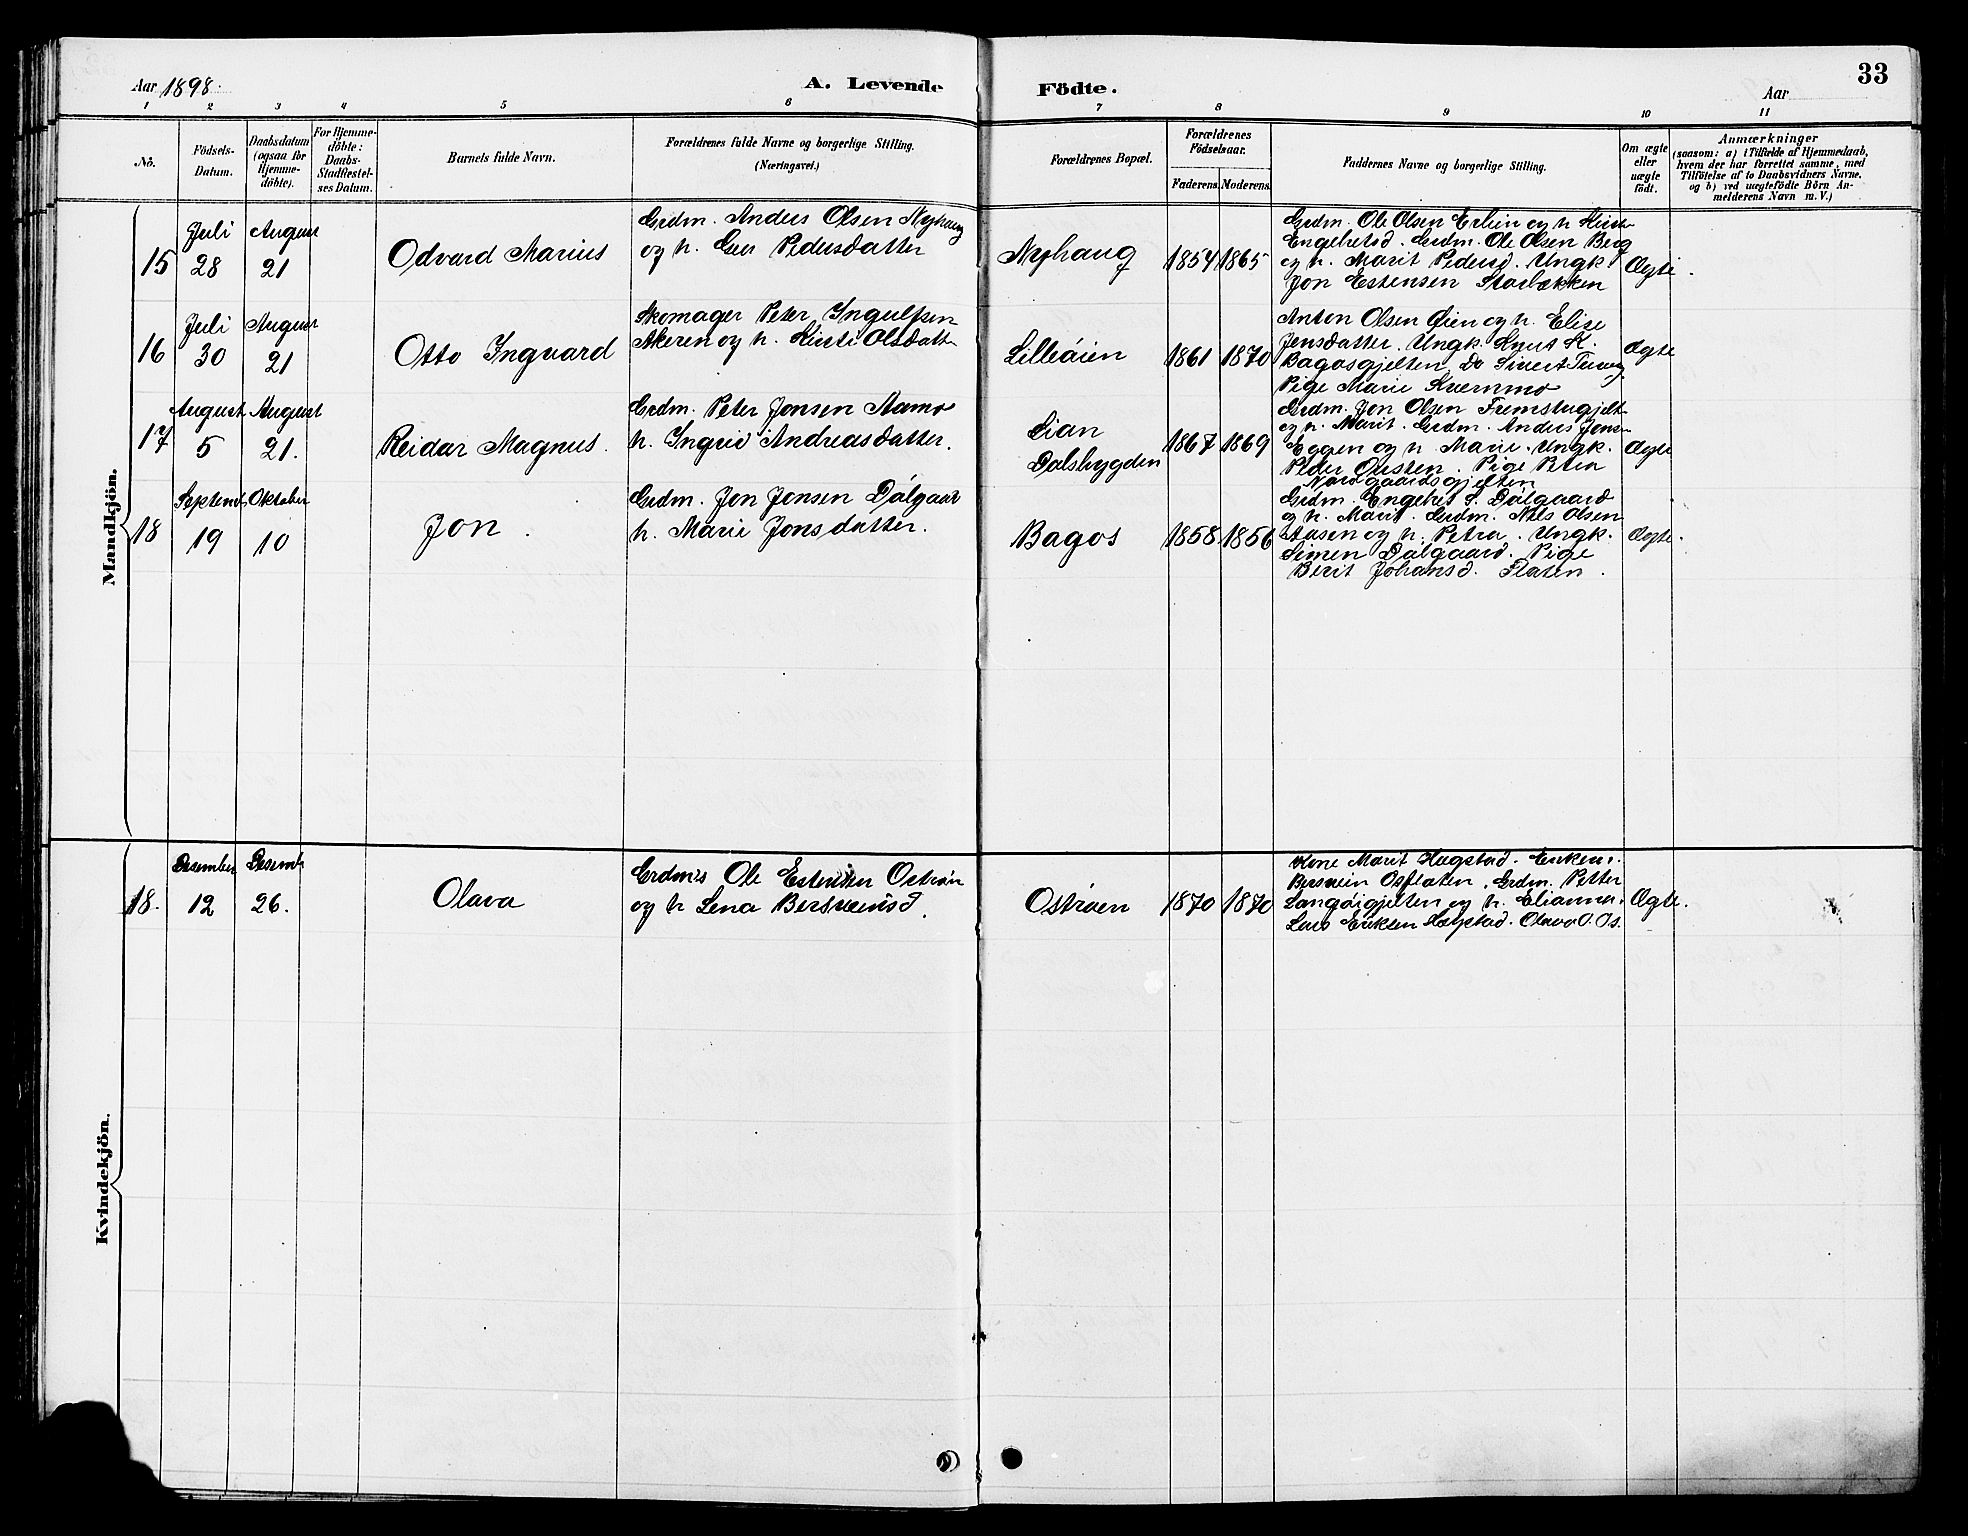 Aar 1898.
A. Levende Födte.
33
Aar
1 2 3 4 5 6 7 8 9 10 11
No.
Födsels-Datum.
Daabsdatum (ogsaa for Hjemmedöbte).
For Hjemmedöbte: Daabs-Stadfæstelses Datum.
Barnets fulde Navn.
Forældrenes fulde Navne og borgerlige Stilling.
(Næringsvei.)
Forældrenes Bopæl.
Forældrenes Födselsaar.
Faderens. Moderens.
Faddernes Navne og borgerlige Stilling.
Om ægte eller uægte födt.
Anmærkninger
(saasom: a) i Tilfælde af Hjemmedaab,
hvem der har forrettet samme, med
Tilföielse af to Daabsvidners Navne.
og b) ved uægtefödte Börn An-
melderens Navn m.V.)
Mandkjön.
15
Juli 28
August 21
Odvard Marius
Grdm. Anders Olsen Nyhaug
og h. Gu Pedersdatter
Nyhaug
1854 1865
Grdm. Ole Olsen Erlien og h
Engebretsd. Grdm. Ole Olsen Berg
og h. Marit Pedersd. Ungk.
Jon Estensen Storbækken
Ægte.
16
Juli 30
August 21
Otto Ingvard
Skomager Peter Ingulfsen
Akeren og h. Kirsti Olsdatt
Lilleöien
1861 1870
Anton Olsen Øien og h. Elise
Jensdatter. Ungk. Knut K.
Bagosgjelten, Do Sivert
Pige Marie Kvernmo
Ægte
17
August 5
August 21.
Reidar Magnus.
Grdm. Peter Jonsen Aamo
h. Ingrid Andreasdatter.
Lian
Dalsbygden
1867 1869
Grdm. Jon Olsen Fremstugjelt
og h. Marit. Grdm. Anders Jons
Eggen og h. Marie. Ungk.
Peder Ousten. Pige Petra
Nordgaardsgjelten
Ægte
18
Septemb. 19
Oktober 10
Jon.
Grdm. Jon Jonsen Dølgaar
h. Marie Jonsdatter.
Bagos
1858 1856
Grdm. Engebret S. Dølgaard
og h. Marit. Grdm. Nils Olsen
Aasen og h. Petra. Ungk.
Simen Dølgaard. Pige
Berit Johansd. Flaten.
Ægte.
Kvindekjön.
18.
Desember 12
Desemb 26.
Olava
Grdm's Ole Estensen Ostrøen
og h Lena Bersveinsd.
Ostrøen
1870 1870
Kone Marit Hægstad. Enkem.
Bersvein Osflaten. Grdm. Petter
Langøigjelten og h. Elianna.
Lars Eriksen Hægstad. Olava O. Os.
Ægte.